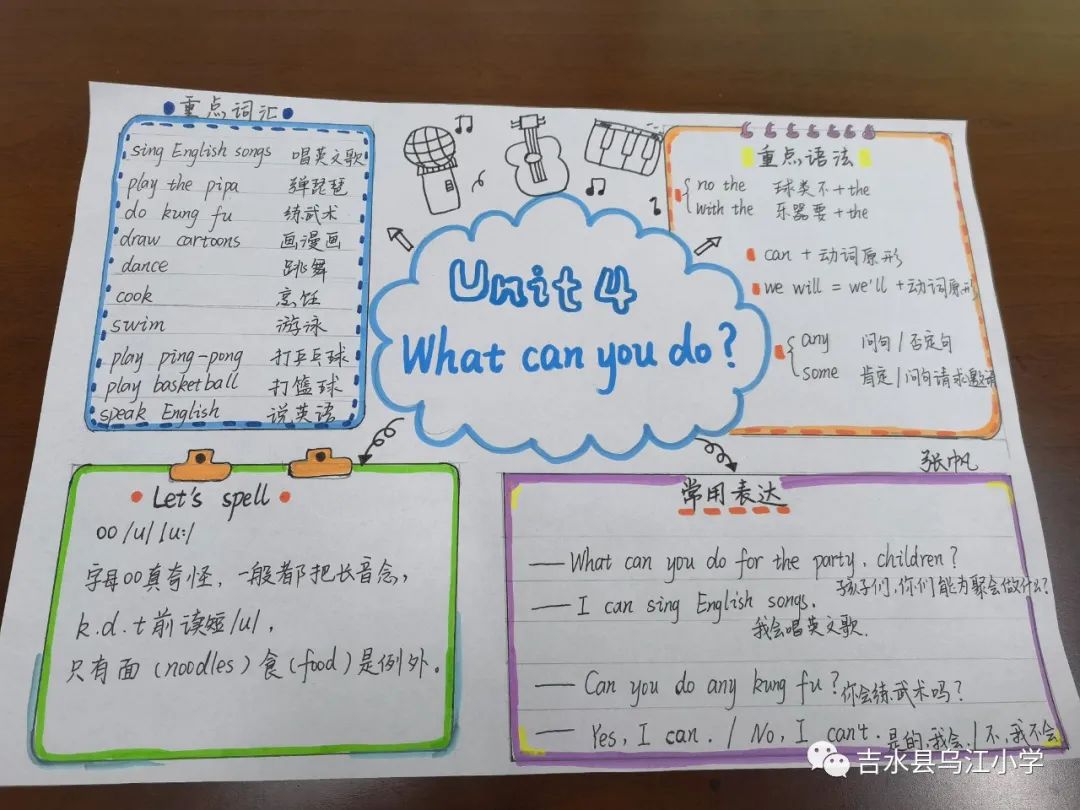 重点词汇
sing English songs 唱英文歌
play the pipa 弹琵琶
do kung fu 练武术
draw cartoons 画漫画
dance 跳舞
cook 烹饪
swim 游泳
play ping-pong 打乒乓球
play basketball 打篮球
speak English 说英语
Unit 4
What can you do?
重点语法
no the 球类不+the
with the 乐器要+the
can + 动词原形
we will = we'll +动词原形
any 问句/否定句
some 肯定/问句请求邀请
张帆
Let's spell
oo /u/ /u:/
字母oo真奇怪,一般都把长音念,
k.d.t前读短/u/,
只有面(noodles)食(food)是例外。
常用表达
—What can you do for the party, children?
孩子们,你们能为聚会做什么?
—I can sing English songs.
我会唱英文歌.
—Can you do any kung fu? 你会练武术吗?
—Yes, I can. / No, I can't. 是的,我会. / 不,我不会
吉水县乌江小学